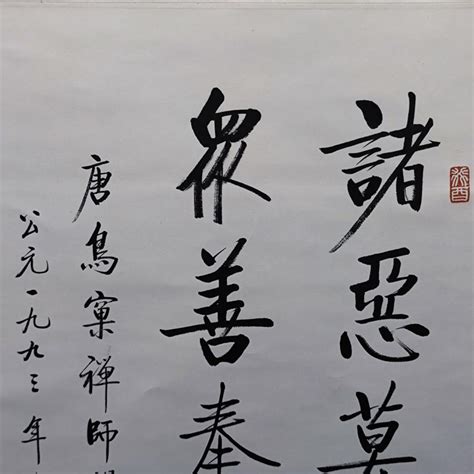 諸惡莫
眾善奉
唐鳥窠禪師
公元一九九三年
癸酉